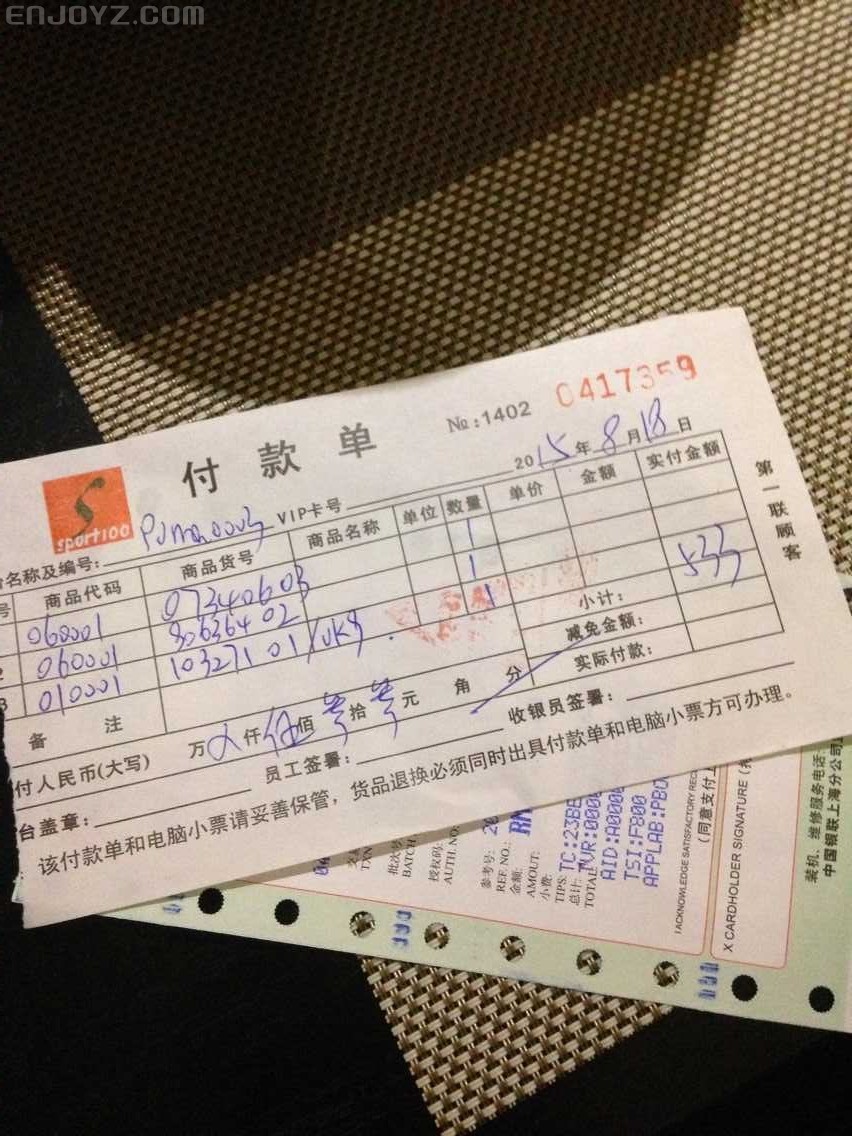 ENJOYZ.COM
付款单
№:1402
0417359
sport100
VIP卡号
2015年8月18日
名称及编号:
号 商品代码 商品货号 商品名称 单位 数量 单价 金额 实付金额
060001 07340603 1
2 060001 80636402 1
3 010001 10327101/UK9 1
小计: 533
减免金额:
实际付款:
备注
付人民币(大写) 万 仟 伍佰 叁拾 叁元 角 分
台盖章: 员工签署: 收银员签署:
该付款单和电脑小票请妥善保管，货品退换必须同时出具付款单和电脑小票方可办理。
第一联顾客
批次号:
BATCH
授权码:
AUTH. NO.:
参考号: 20
REF. NO.:
金额:
AMOUT:
小费:
TIPS:
总计:
TOTAL
TC:23BE
TVR:0000
AID:A0000
TSI:F800
APPLAB:PBO
I ACKNOWLEDGE SATISFACTORY REC
(同意支付上
X CARDHOLDER SIGNATURE
装机、维修服务电话:
中国银联上海分公司